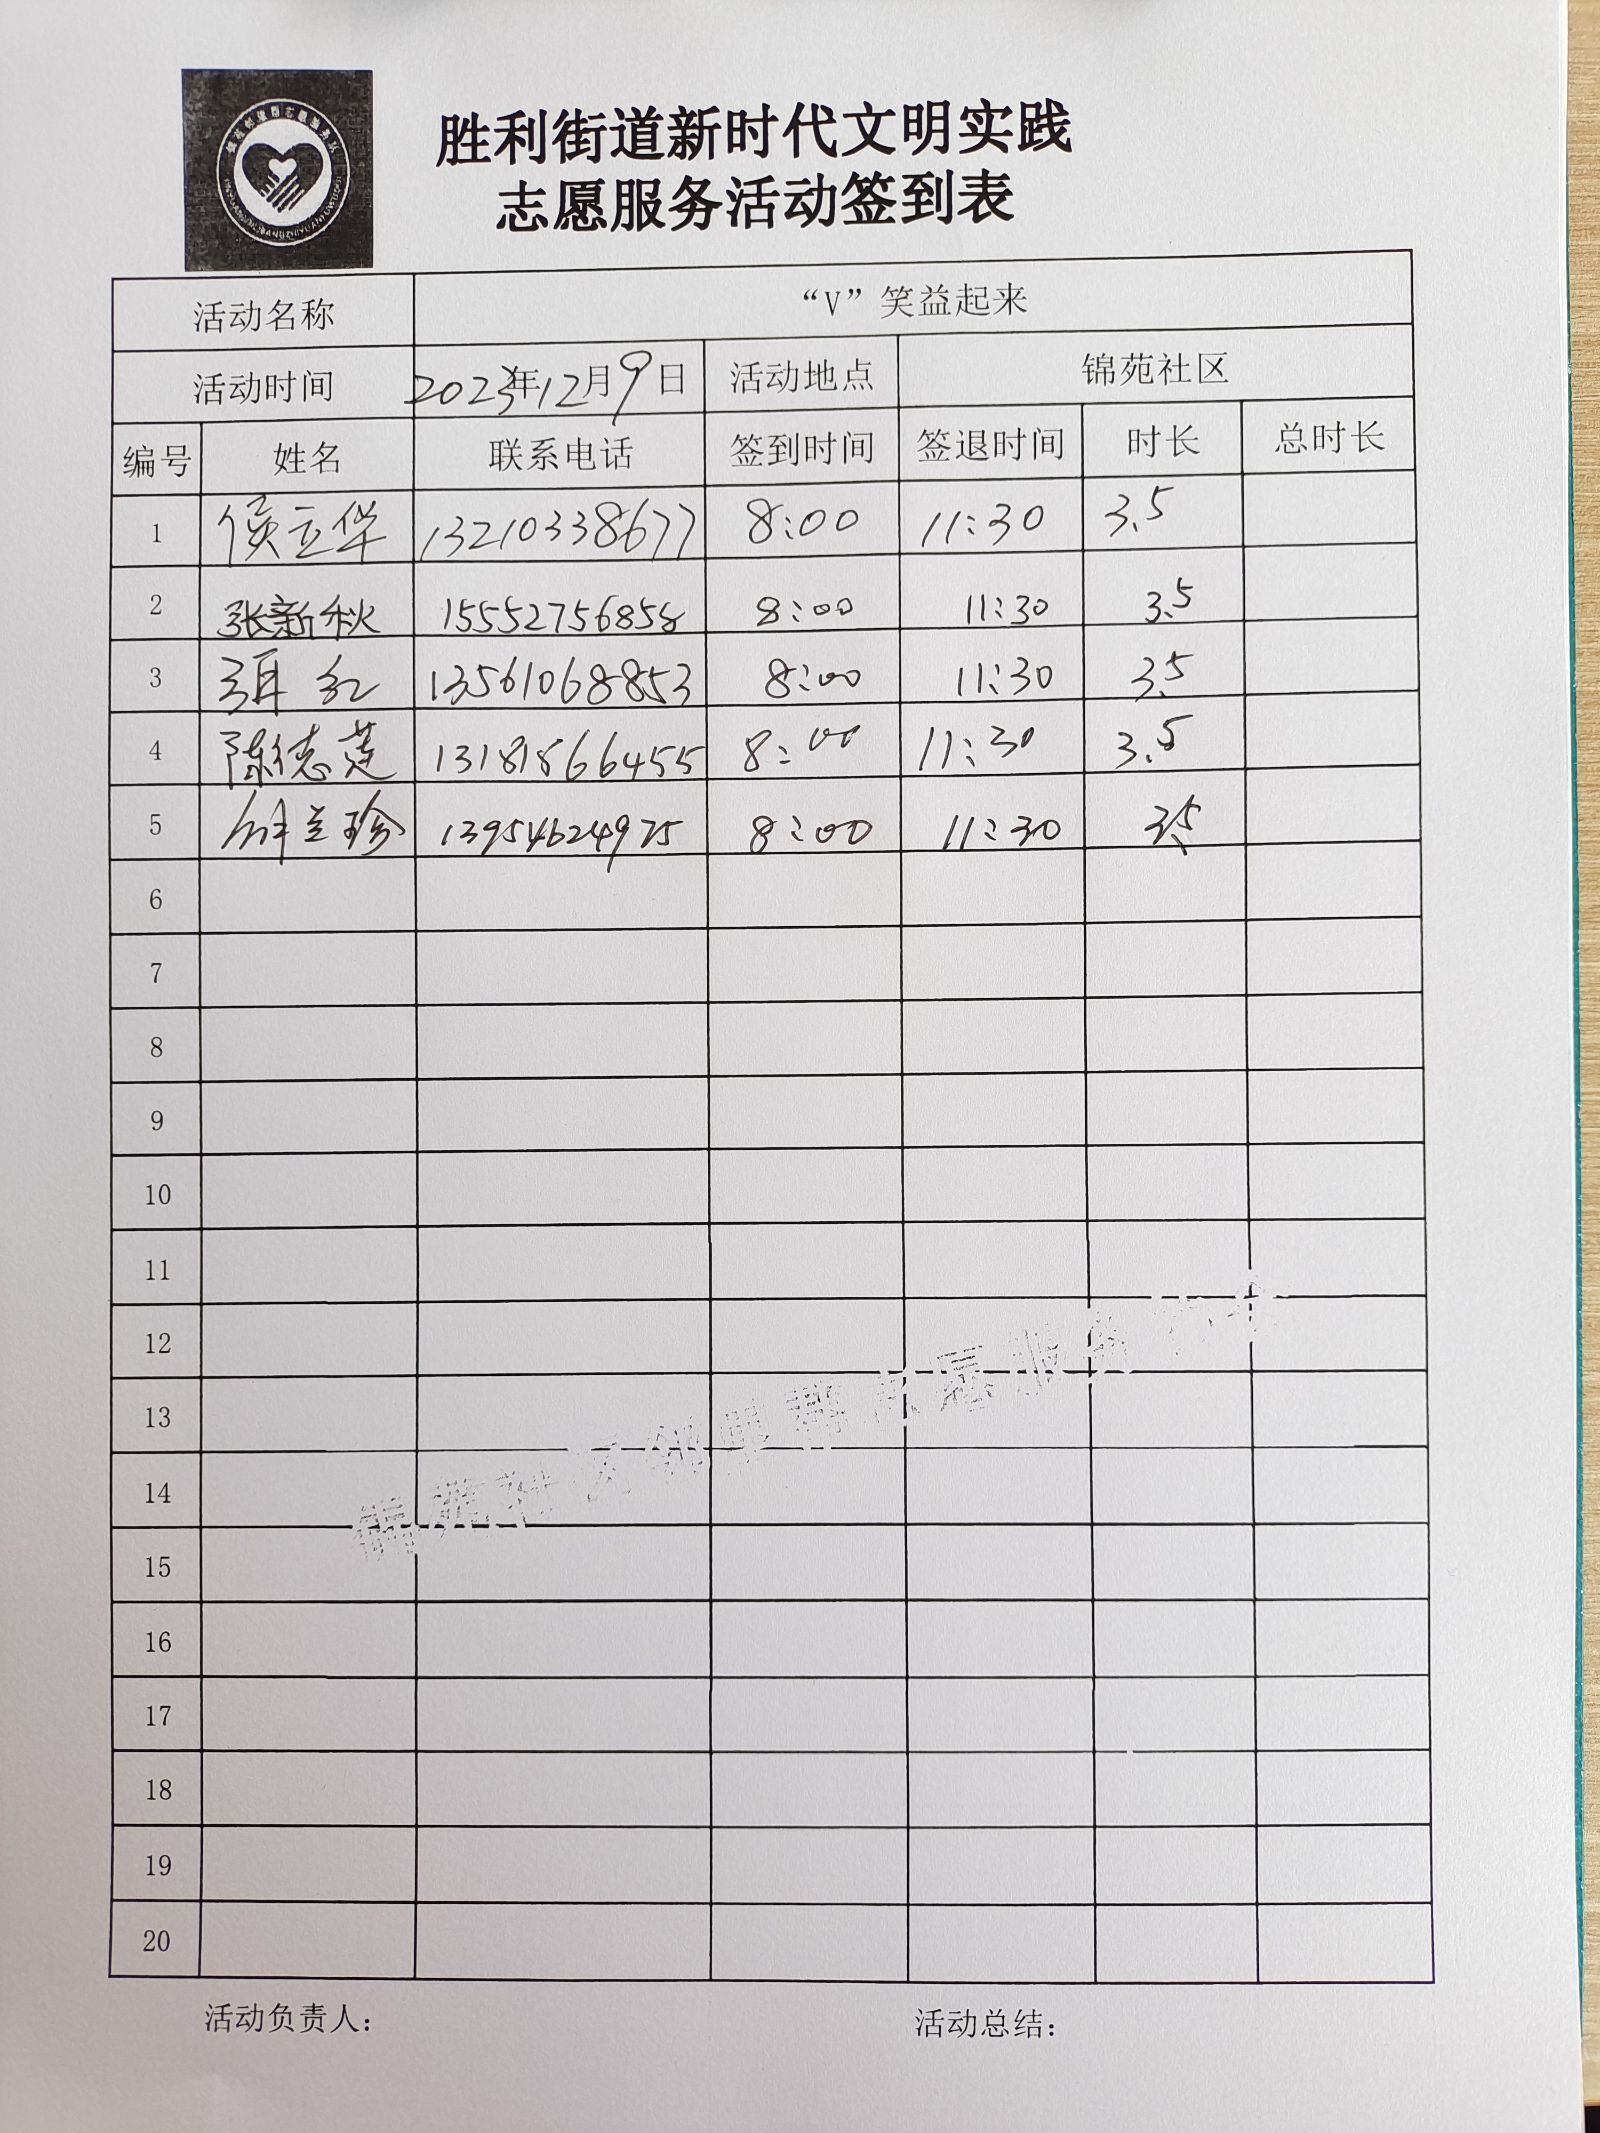 胜利街道新时代文明实践
志愿服务活动签到表
活动名称 “V”笑益起来
活动时间 2023年12月9日 活动地点 锦苑社区
编号 姓名 联系电话 签到时间 签退时间 时长 总时长
1 侯立华 13210338677 8:00 11:30 3.5
2 张新秋 15552756858 8:00 11:30 3.5
3 红 13561068853 8:00 11:30 3.5
4 陈德莲 13181866455 8:00 11:30 3.5
5 立珍 13954624975 8:00 11:30 3.5
6
7
8
9
10
11
12
13
14
15
16
17
18
19
20
锦苑社区创建帮志愿服务
活动负责人： 活动总结：